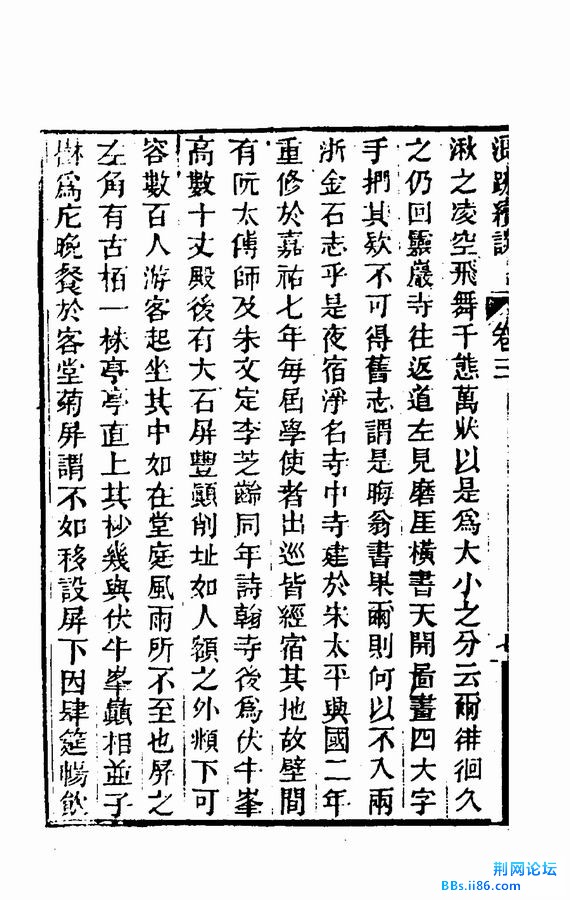 浪跡續談 卷三 七
湫之凌空飛舞千態萬狀以是爲大小之分云爾徘徊久
之仍回靈巖寺往返道左見磨厓橫書天開圖畫四大字
手捫其欵不可得舊志謂是晦翁書果爾則何以不入兩
浙金石志乎是夜宿淨名寺中寺建於宋太平興國二年
重修於嘉祐七年每屆學使者出巡皆經宿其地故壁間
有阮太傅師及朱文定李芝齡同年詩翰寺後爲伏牛峯
高數十丈殿後有大石屏豐顚削址如人額之外頫下可
容數百人游客起坐其中如在堂庭風雨所不至也屏之
左角有古栢一株亭亭直上其杪幾與伏牛峯巓相並子
爲尼晚餐於客堂菊屏謂不如移設屏下因肆筵暢飲
荆网论坛
BBs.ii86.com